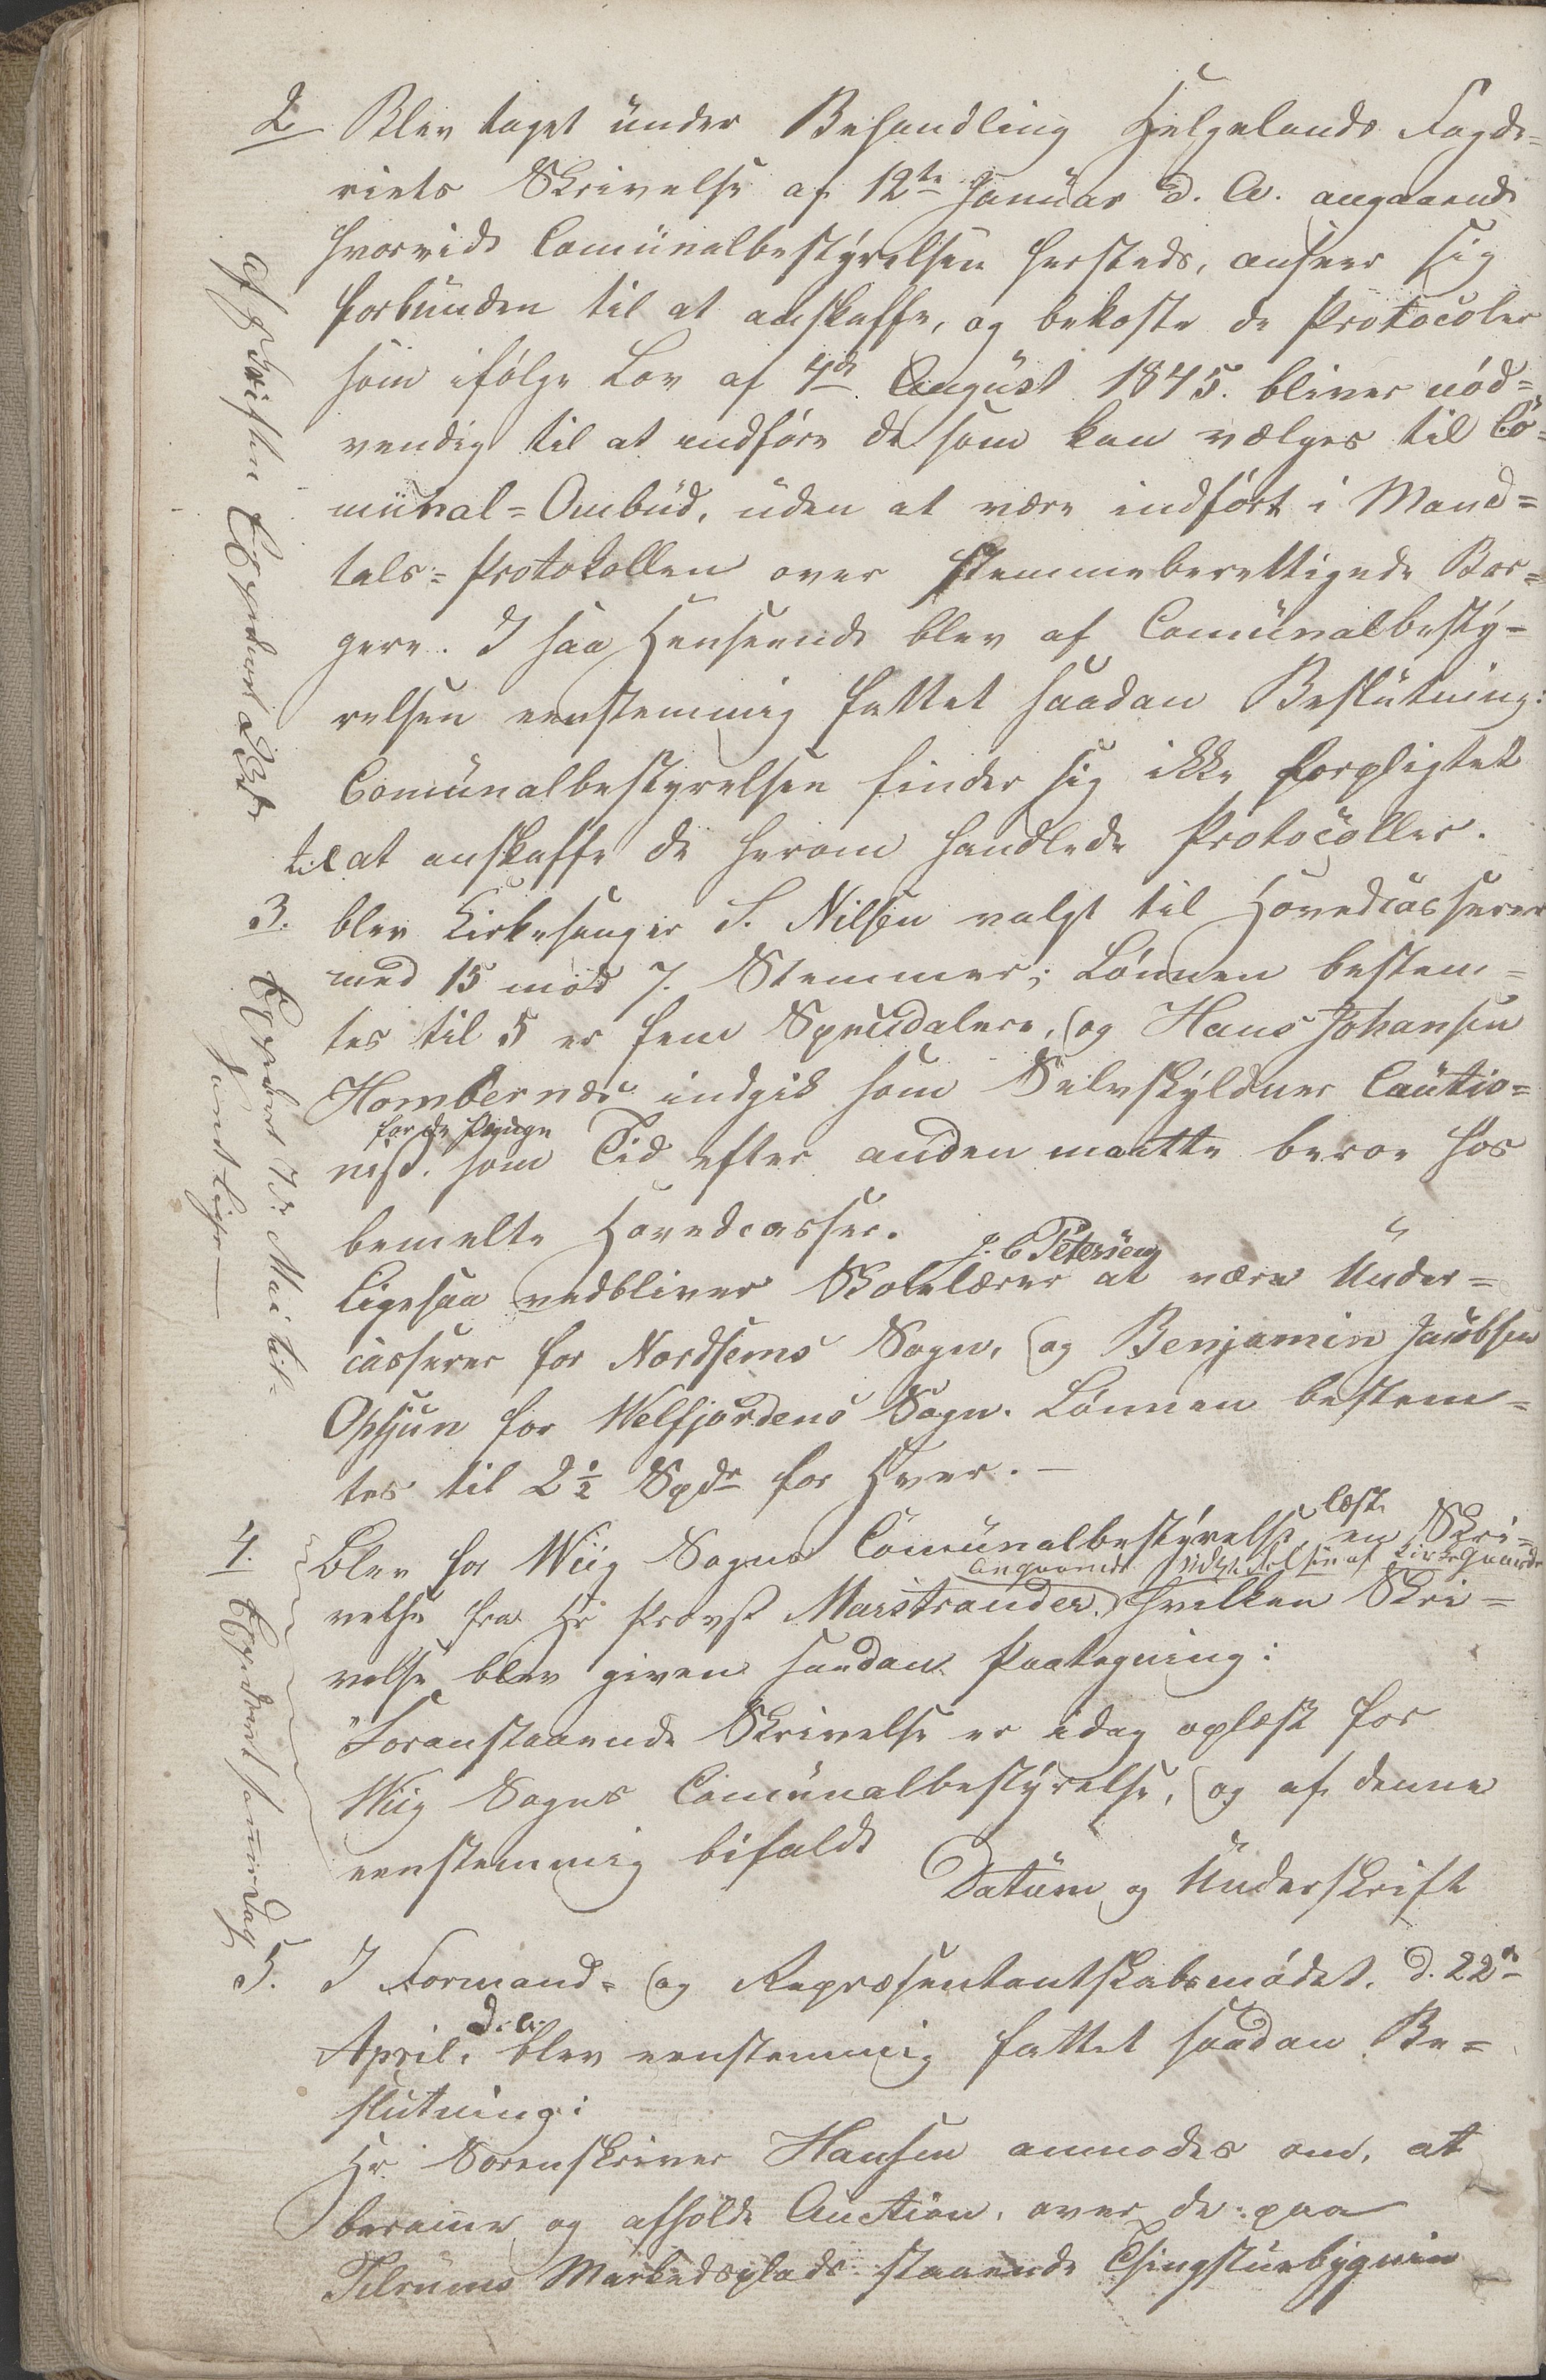 2 Blev taget under Behandling Helgelands Fogde-
riets Skrivelse af 12te Januar d. A. angaaende
hvorvidt Comunalbestyrelsen hersteds, anseer sig
forbunden til at anskaffe, og bekoste de Protocoler
som ifølge Lov af 4de August 1845. bliver nød=
vendig til at indføre de som kan vælges til Co=
munal=Ombud, uden at være indført i Mand=
tals=Protokollen over stemmeberettigede Bor=
gere. I saa Henseende blev af Comunalbesty-
relsen eenstemmig fattet saadan Beslutning:
Comunalbestyrelsen finder sig ikke forpligtet
til at anskaffe de herom handlede Protocoller.
3. blev Kirkesanger S. Nilsen valgt til Hovedcasserer
med 15 mod 7. Stemmer; Lønnen bestem=
tes til 5 er fem Speudalere, og Hans Johansen
Hombernæs indgik som Selvskyldner Cautio=
for de Penge
nist. som Tid efter anden maatte beroe hos
bemelte Hovedcasser.
J. C Petersen
Ligesaa vedbliver Skolelærer at være Under=
casserer for Nordhems Sogn, og Benjamin Jacobsen
Opsjun for Welfjordens Sogn. Lønnen bestem=
tes til 2½ Spdr for Hver. —
læst
4. Blev for Wiig Sogns Comunalbestyrelse, en Skri=
angaaende Udvidelsen af Kirkegaarde
velse fra Hr Provst Marstrander. hvilken Skri=
velse blev given saadan Paategning:
"Foranstaaende Skrivelse er idag oplæst for
Wiig Sogns Comunalbestyrelse, og af denne
eenstemmig bifaldt
Datum og Underskrift
5. I Formand= og Repræsentantskabsmødet. d. 22de
d. a.
April, blev eenstemmig fattet saadan Be=
slutning:
Hr. Sorenskriver Hansen anmodes om, at
berame og afholde Auction, over de: paa
Tilrums Markedsplads staaende Thingstuebygnin
Afskriften Expederet
Expedert 7de Mai til=
samtlige —
Expedeert samme Dag